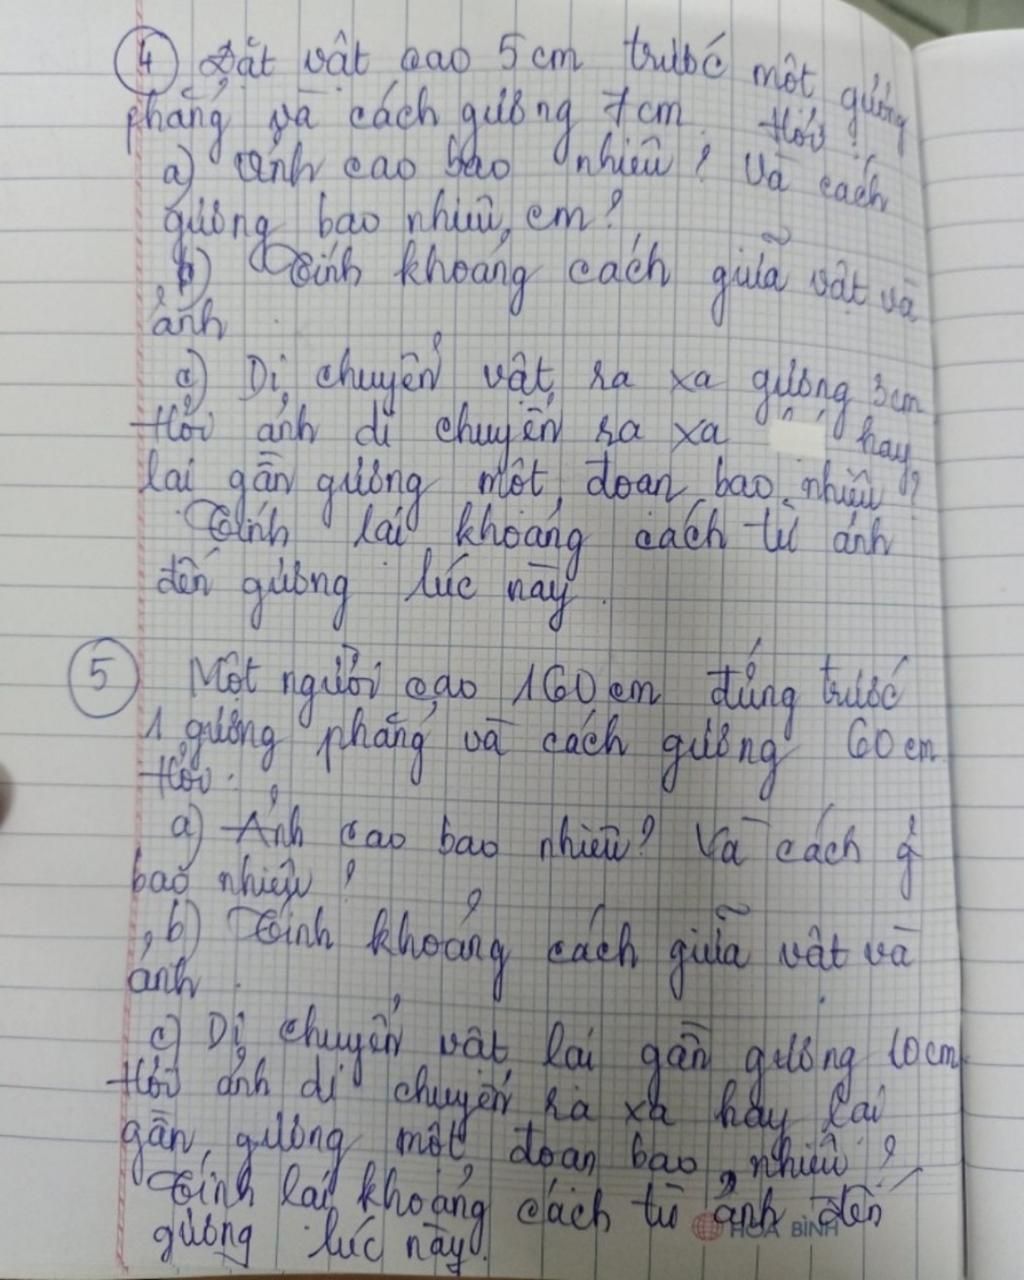 4 Đặt vật cao 5cm trước một gương
phẳng và cách gương 7cm. Hỏi:
a) Ảnh cao bao nhiêu? Và cách
gương bao nhiêu cm?
b) Tính khoảng cách giữa vật và
ảnh.
c) Di chuyển vật ra xa gương 3cm
Hỏi ảnh di chuyển ra xa hay
lại gần gương một đoạn bao nhiêu?
Tính lại khoảng cách từ ảnh
đến gương lúc này.
5 Một người cao 160cm đứng trước
1 gương phẳng và cách gương 60cm
Hỏi:
a) Ảnh cao bao nhiêu? Và cách g
bao nhiêu?
b) Tính khoảng cách giữa vật và
ảnh.
c) Di chuyển vật lại gần gương 10cm
Hỏi ảnh di chuyển ra xa hay lại
gần gương một đoạn bao nhiêu?
Tính lại khoảng cách từ ảnh đến
gương lúc này.
HOA BINH